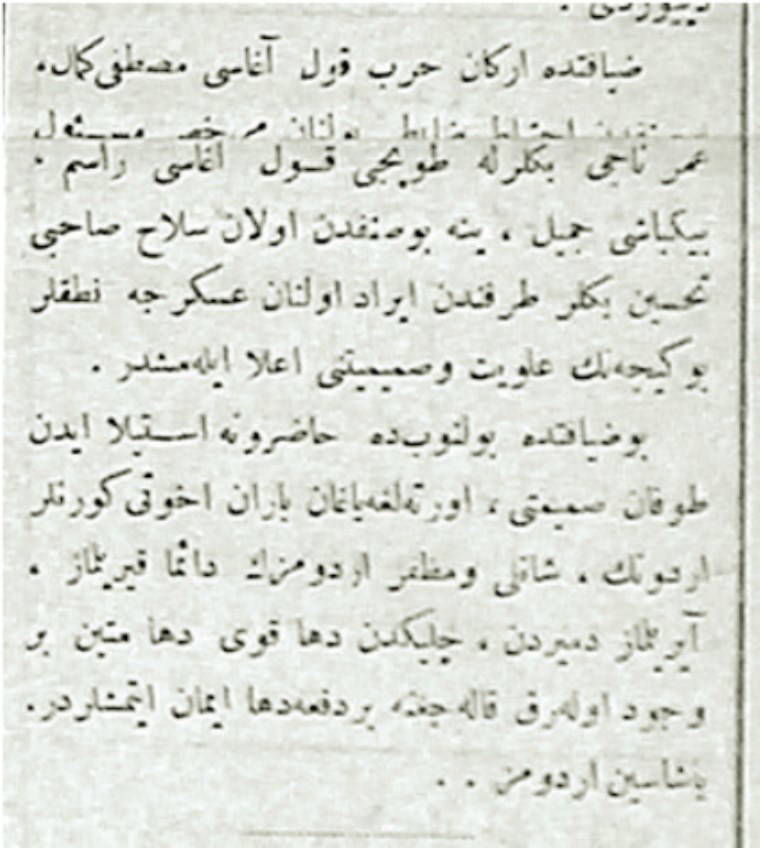 دیییوردی .
ضیافتده اركان حرب قول آغاسی مصطفی كمال،
احتیاط ضابطی بولنان مرخص مسئول
عمر ناجی بكلرله طوپجی قــول آغاسی راسم .
بیكباشی جمیل ، ینه بوصنفدن اولان سلاح صاحبی
تحسین بكلر طرفندن ایراد اولنان عسكرجه نطقلر
بوكیجه‌نك علویت وصمیمیتنی اعلا ایله‌مشدر .
بوضیافتده بولنوب‌ده حاضرونه استیلا ایدن
طوفان صمیمتی ، اورته‌لغه‌یاغان باران اخوتی كورنلر
اردونك ، شانلی ومظفر اردومزك دائما قیریلماز ،
آیریلماز دمیردن ، چلیكدن دها قوی دها متین بر
وجود اوله‌رق قاله‌جغنه بردفعه‌دها ایمان ایتمشلردر.
یاشاسین اردومز . .